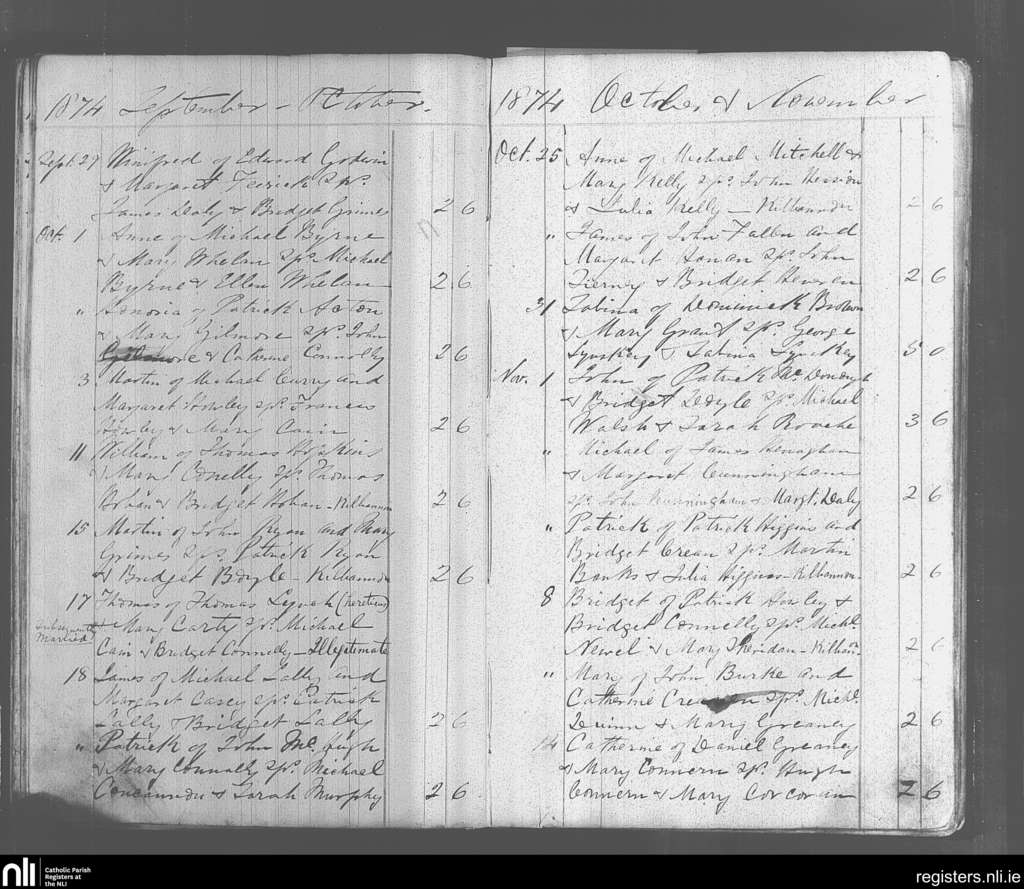 1874 September - October.
Sept. 27 Winifred of Edward Godwin
& Margaret Feerick Sps.
James Daly & Bridget Grimes 2 6
Oct. 1 Anne of Michael Byrne
& Mary Whelan Sps. Michael
Byrne & Ellen Whelan 2 6
" Honoria of Patrick Acton
& Mary Gilmore Sps. John
Gilmore & Catherine Connolly 2 6
3 Martin of Michael Curry and
Margaret Howley Sps. Francis
Howley & Mary Cain 2 6
11 William of Thomas Hopkins
& Mary Conelly Sps. Thomas
& Bridget Hoban - Kilbannon 2 6
15 Martin of John Ryan and Mary
Grimes Sps. Patrick Ryan
& Bridget Boyle - Kilbannon 2 6
17 Thomas of Thomas Lynch (heretic)
subsequently married
& Mary Carty Sps. Michael
Cain & Bridget Connelly - Illegitimate
18 James of Michael Lally and
Margaret Casey Sps. Patrick
Lally & Bridget Lally 2 6
" Patrick of John Mc. Hugh
& Mary Connolly Sps. Michael
Concannon & Sarah Murphy 2 6
1874 October & November
Oct. 25 Anne of Michael Mitchell &
Mary Kelly Sps. John Hession
& Julia Kelly - Kilbannon 2 6
" James of John Fallon and
Margaret Honan Sps. John
Tierney & Bridget 2 6
31 Sabina of Dominick Brown
& Mary Grant Sps. George
Lynskey & Sabina Lynskey 5 0
Nov. 1 John of Patrick Mc. Donough
& Bridget Doyle Sps. Michael
Walsh & Sarah Rouche 3 6
" Michael of James Henaghan
& Margaret Cunningham
Sps. John Cunningham & Margt. Daly 2 6
" Patrick of Patrick Higgins and
Bridget Crean Sps. Martin
Banks & Julia Higgins - Kilbannon 2 6
8 Bridget of Patrick Howley &
Bridget Connelly Sps. Michl.
Newel & Mary Sheridan - Kilban. 2 6
" Mary of John Burke and
Catherine Sps. Michl.
Quinn & Mary Greaney 2 6
14 Catherine of Daniel Greaney
& Mary Connern Sps. Hugh
Connern & Mary Corcoran 2 6
nli
Catholic Parish
Registers at
the NLI
registers.nli.ie